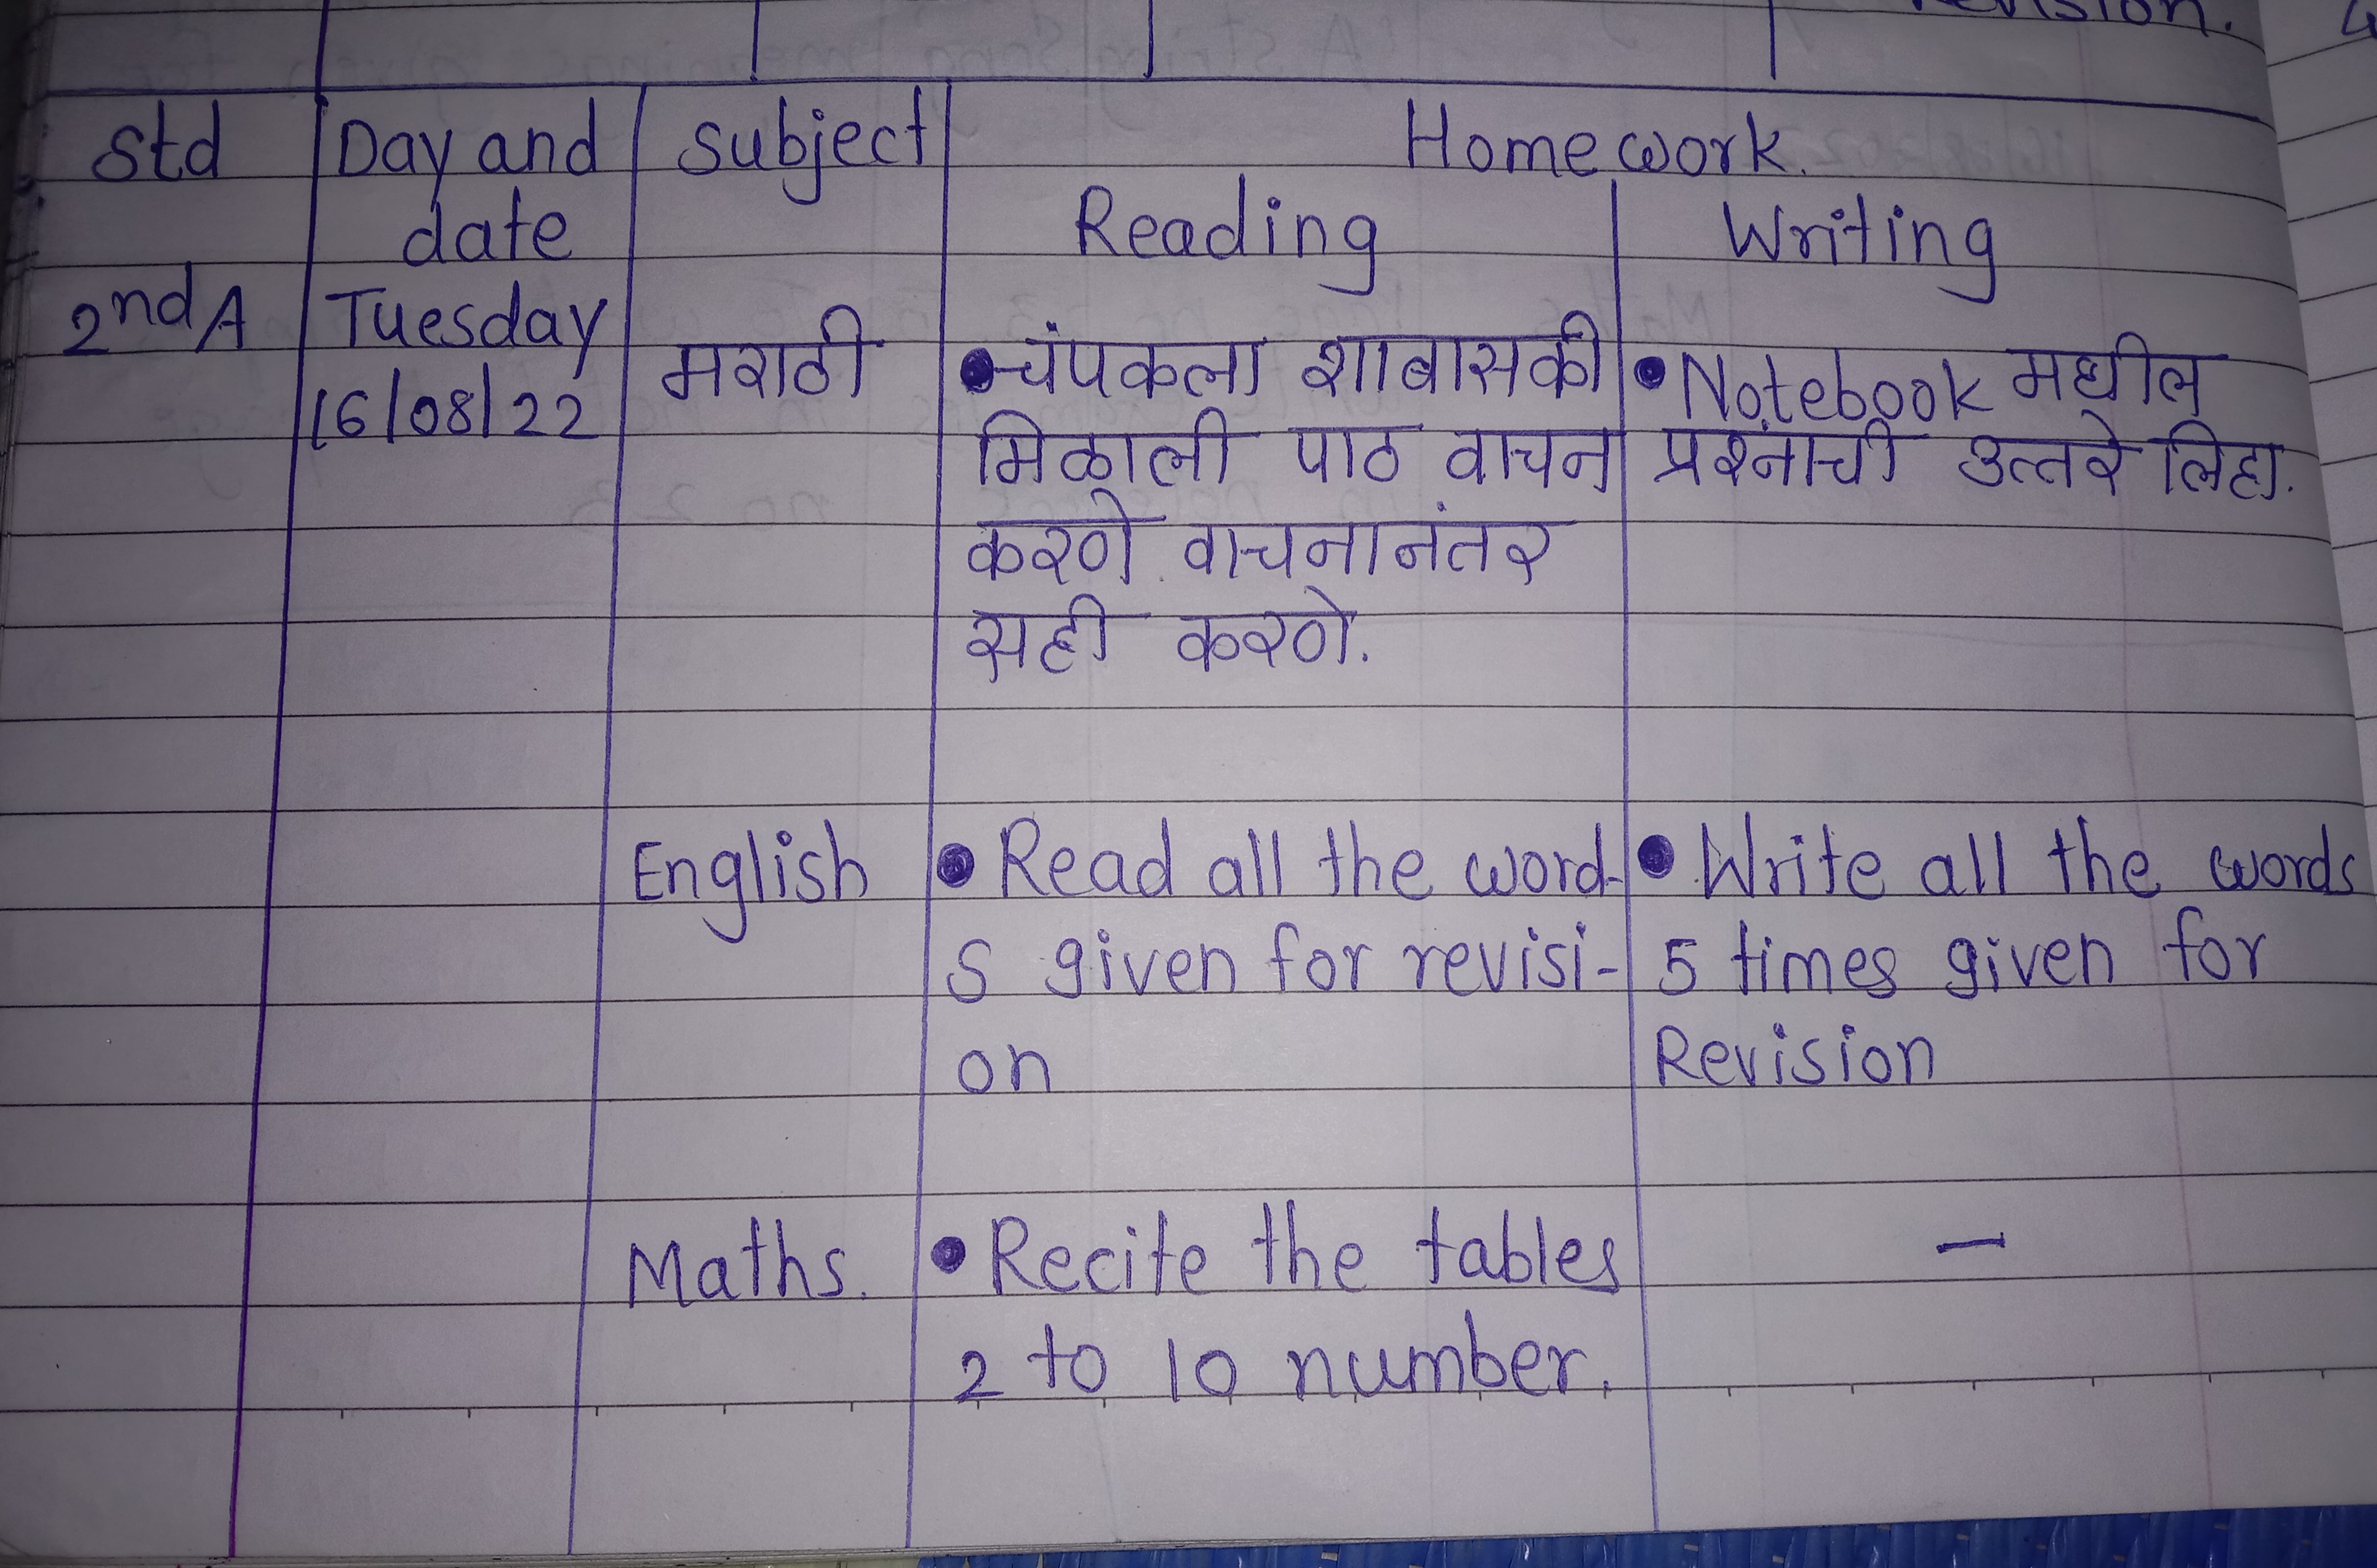 Revision.
Std Day and date subject Homework.
Reading Writing
2nd A Tuesday
16/08/22
मराठी
• चंपकला शाबासकी
मिळाली पाठ वाचन
करणे. वाचनानंतर
सही करणे.
• Notebook मधील
प्रश्नांची उत्तरे लिहा.
English
• Read all the word-
s given for revisi-
on
• Write all the words
5 times given for
Revision
Maths.
• Recite the tables
2 to 10 number.
—